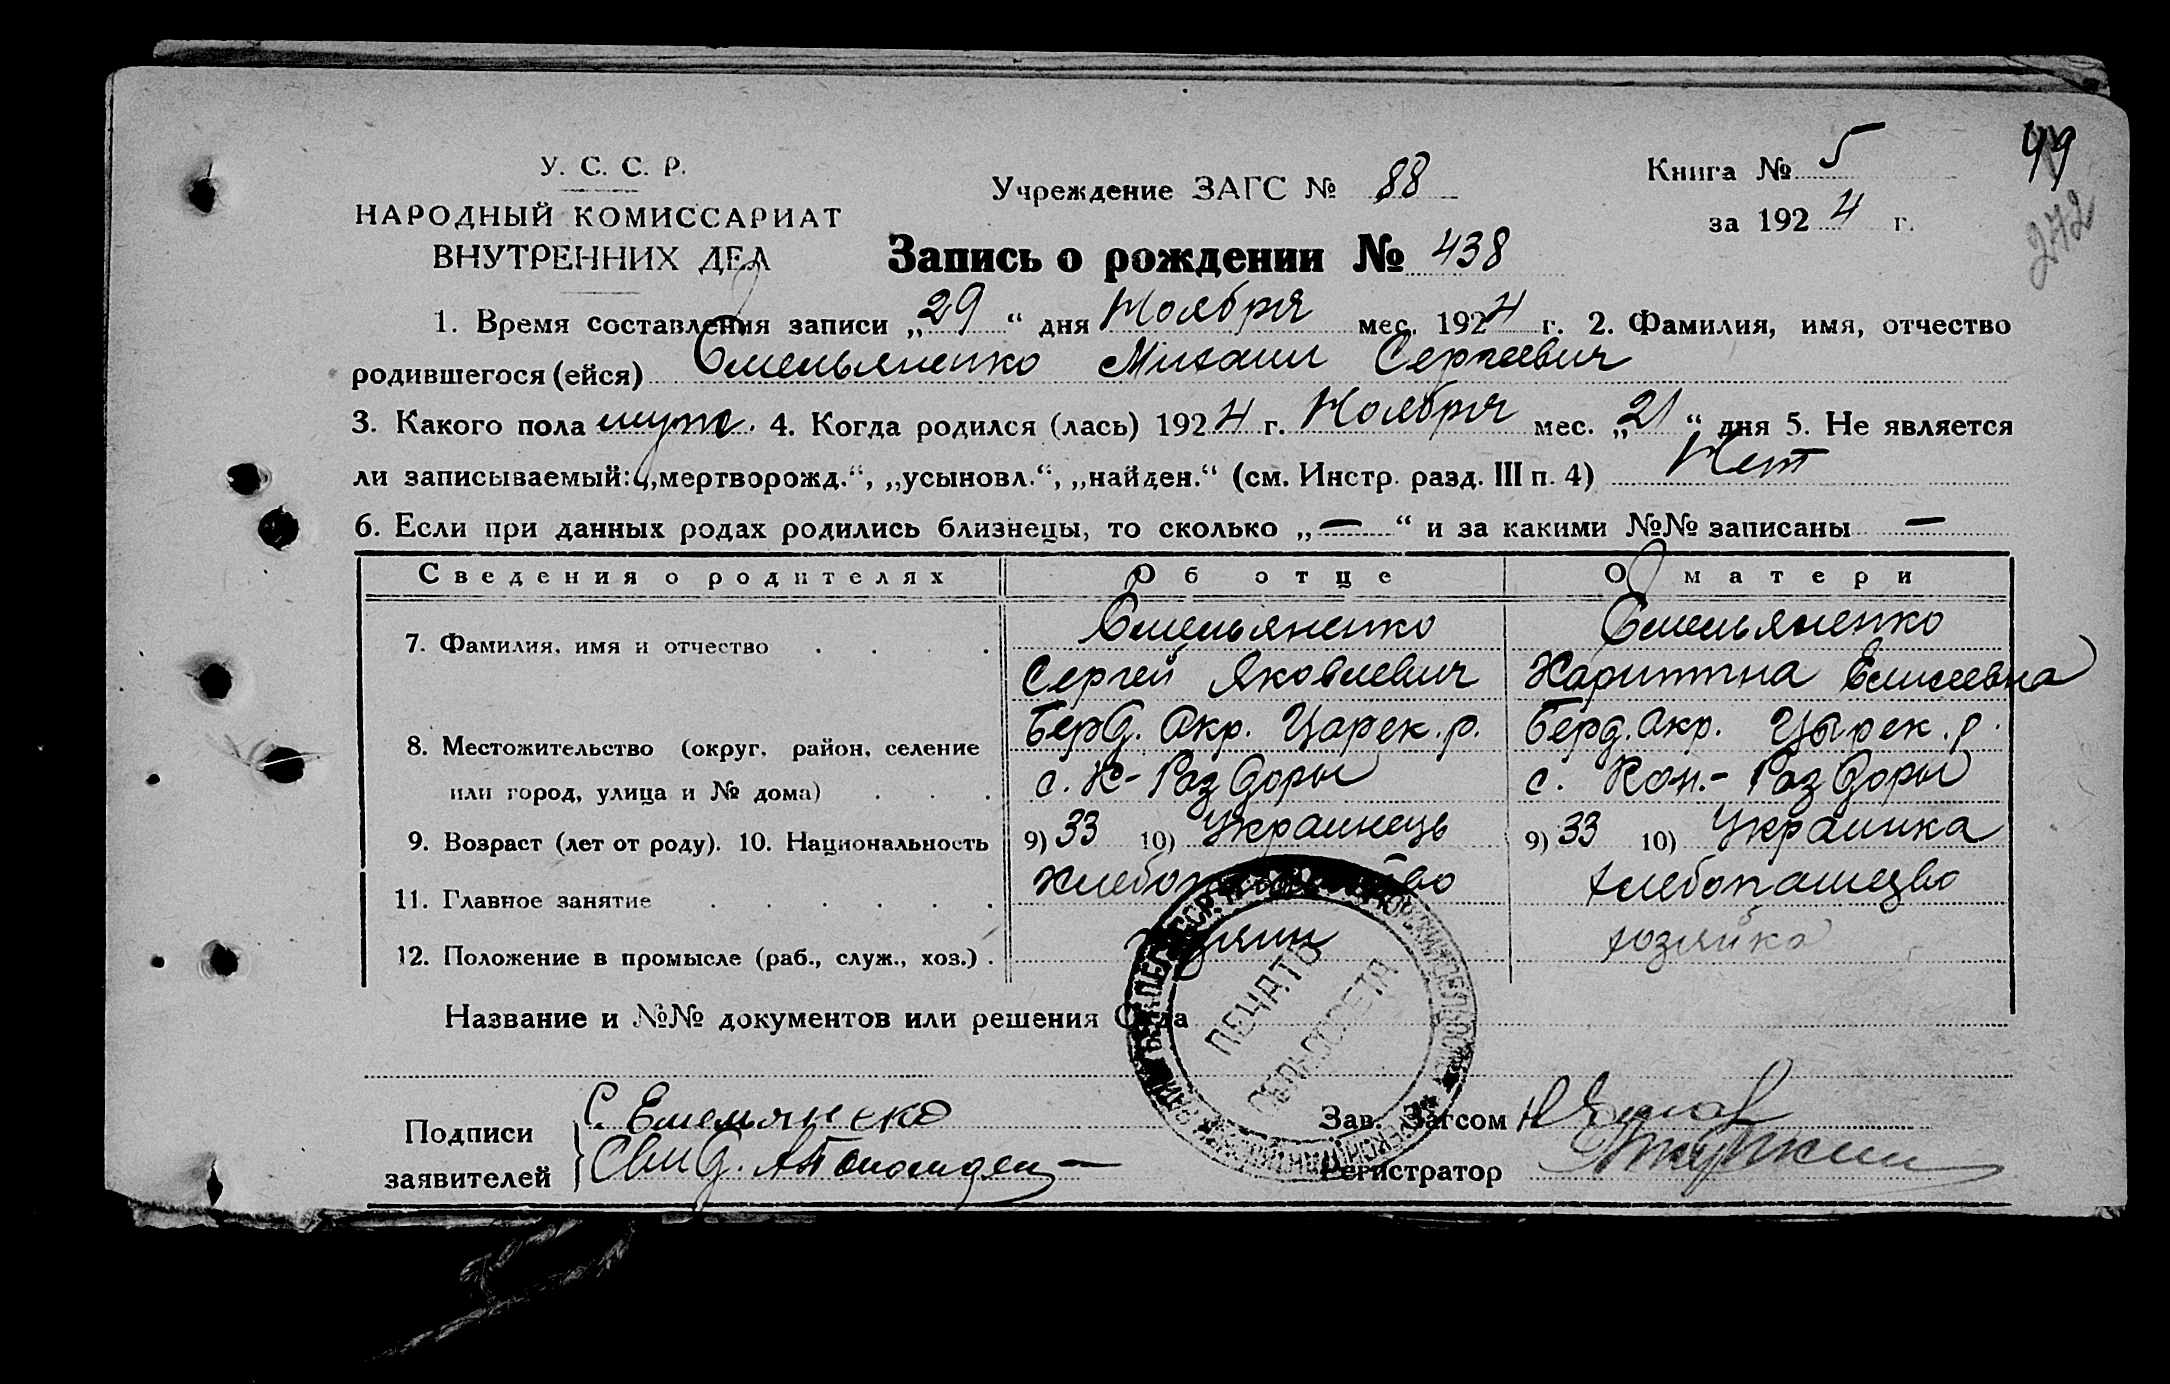 У. С. С. Р.
НАРОДНЫЙ КОМИССАРИАТ
ВНУТРЕННИХ ДЕЛ
Учреждение ЗАГС № 88
Книга № 5
за 1924 г.
99
272
Запись о рождении № 438
1. Время составления записи „29“ дня Ноября мес. 1924 г. 2. Фамилия, имя, отчество
родившегося (ейся) Омельяненко Михаил Сергеевич
3. Какого пола муж. 4. Когда родился (лась) 1924 г. Ноября мес. „21“ дня 5. Не является
ли записываемый: „мертворожд.“, „усыновл.“, „найден.“ (см. Инстр. разд. III п. 4) Нет
6. Если при данных родах родились близнецы, то сколько „—“ и за какими №№ записаны —
Сведения о родителях Об отце О матери
7. Фамилия, имя и отчество Емельяненко Емельяненко
Сергей Яковлевич Харитина Елисеевна
8. Местожительство (округ, район, селение Берд. Окр. Царек. р. Берд. Окр. Цырек. р.
или город, улица и № дома) с. К-Раздоры с. Кон.-Раздоры
9. Возраст (лет от роду). 10. Национальность 9) 33 10) Украинець 9) 33 10) Украинка
11. Главное занятие хлебопашество хлебопашецво
12. Положение в промысле (раб., служ., хоз.) хозяин хозяйка
Название и №№ документов или решения Суда
ПЕЧАТЬ
СЕЛЬСОВЕТА
Подписи
заявителей
С. Емельяненко
Свид.
Зав. Загсом
Регистратор